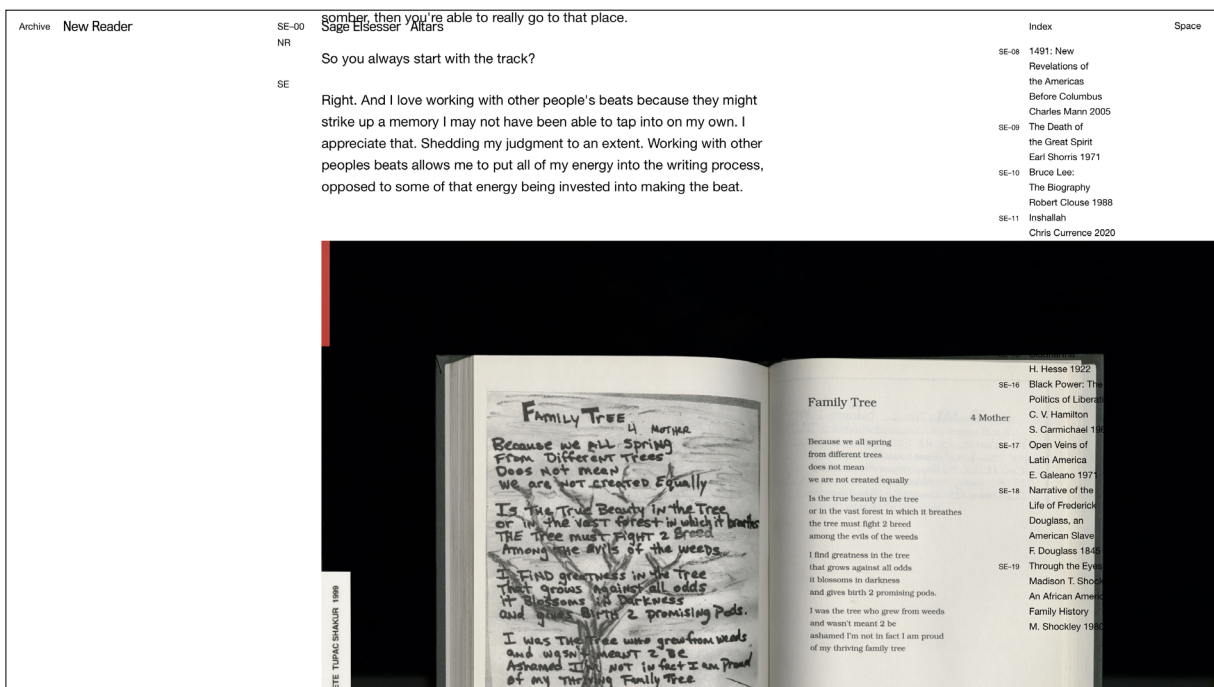 Archive
New Reader
SE–00
NR
SE
Sage Elsesser
Altars
Index
Space
somber, then you're able to really go to that place.
So you always start with the track?
Right. And I love working with other people's beats because they might
strike up a memory I may not have been able to tap into on my own. I
appreciate that. Shedding my judgment to an extent. Working with other
peoples beats allows me to put all of my energy into the writing process,
opposed to some of that energy being invested into making the beat.
SE–08 1491: New
Revelations of
the Americas
Before Columbus
Charles Mann 2005
SE–09 The Death of
the Great Spirit
Earl Shorris 1971
SE–10 Bruce Lee:
The Biography
Robert Clouse 1988
SE–11 Inshallah
Chris Currence 2020
H. Hesse 1922
SE–16 Black Power: The
Politics of Liberati
C. V. Hamilton
S. Carmichael 196
SE–17 Open Veins of
Latin America
E. Galeano 1971
SE–18 Narrative of the
Life of Frederick
Douglass, an
American Slave
F. Douglass 1845
SE–19 Through the Eyes
Madison T. Shock
An African Americ
Family History
M. Shockley 1980
FAMILY TREE
4 MOTHER
Because we ALL Spring
From Different Trees
Does Not mean
we are NOT created Equally
Is The True Beauty in the Tree
or in the vast forest in which it breathes
THE Tree must FigHT 2 Breed
Among the evils of the weeds
I FIND greatness in the Tree
That grows Against all odds
it Blossoms in Darkness
and gives Birth 2 promising Pods.
I was THE Tree who grew from weeds
and wasn't meant 2 be
Ashamed I'm NOT in fact I am Proud
of my THRIVING Family Tree
Family Tree
4 Mother
Because we all spring
from different trees
does not mean
we are not created equally
Is the true beauty in the tree
or in the vast forest in which it breathes
the tree must fight 2 breed
among the evils of the weeds
I find greatness in the tree
that grows against all odds
it blossoms in darkness
and gives birth 2 promising pods.
I was the tree who grew from weeds
and wasn't meant 2 be
ashamed I'm not in fact I am proud
of my thriving family tree
ETE TUPAC SHAKUR 1999